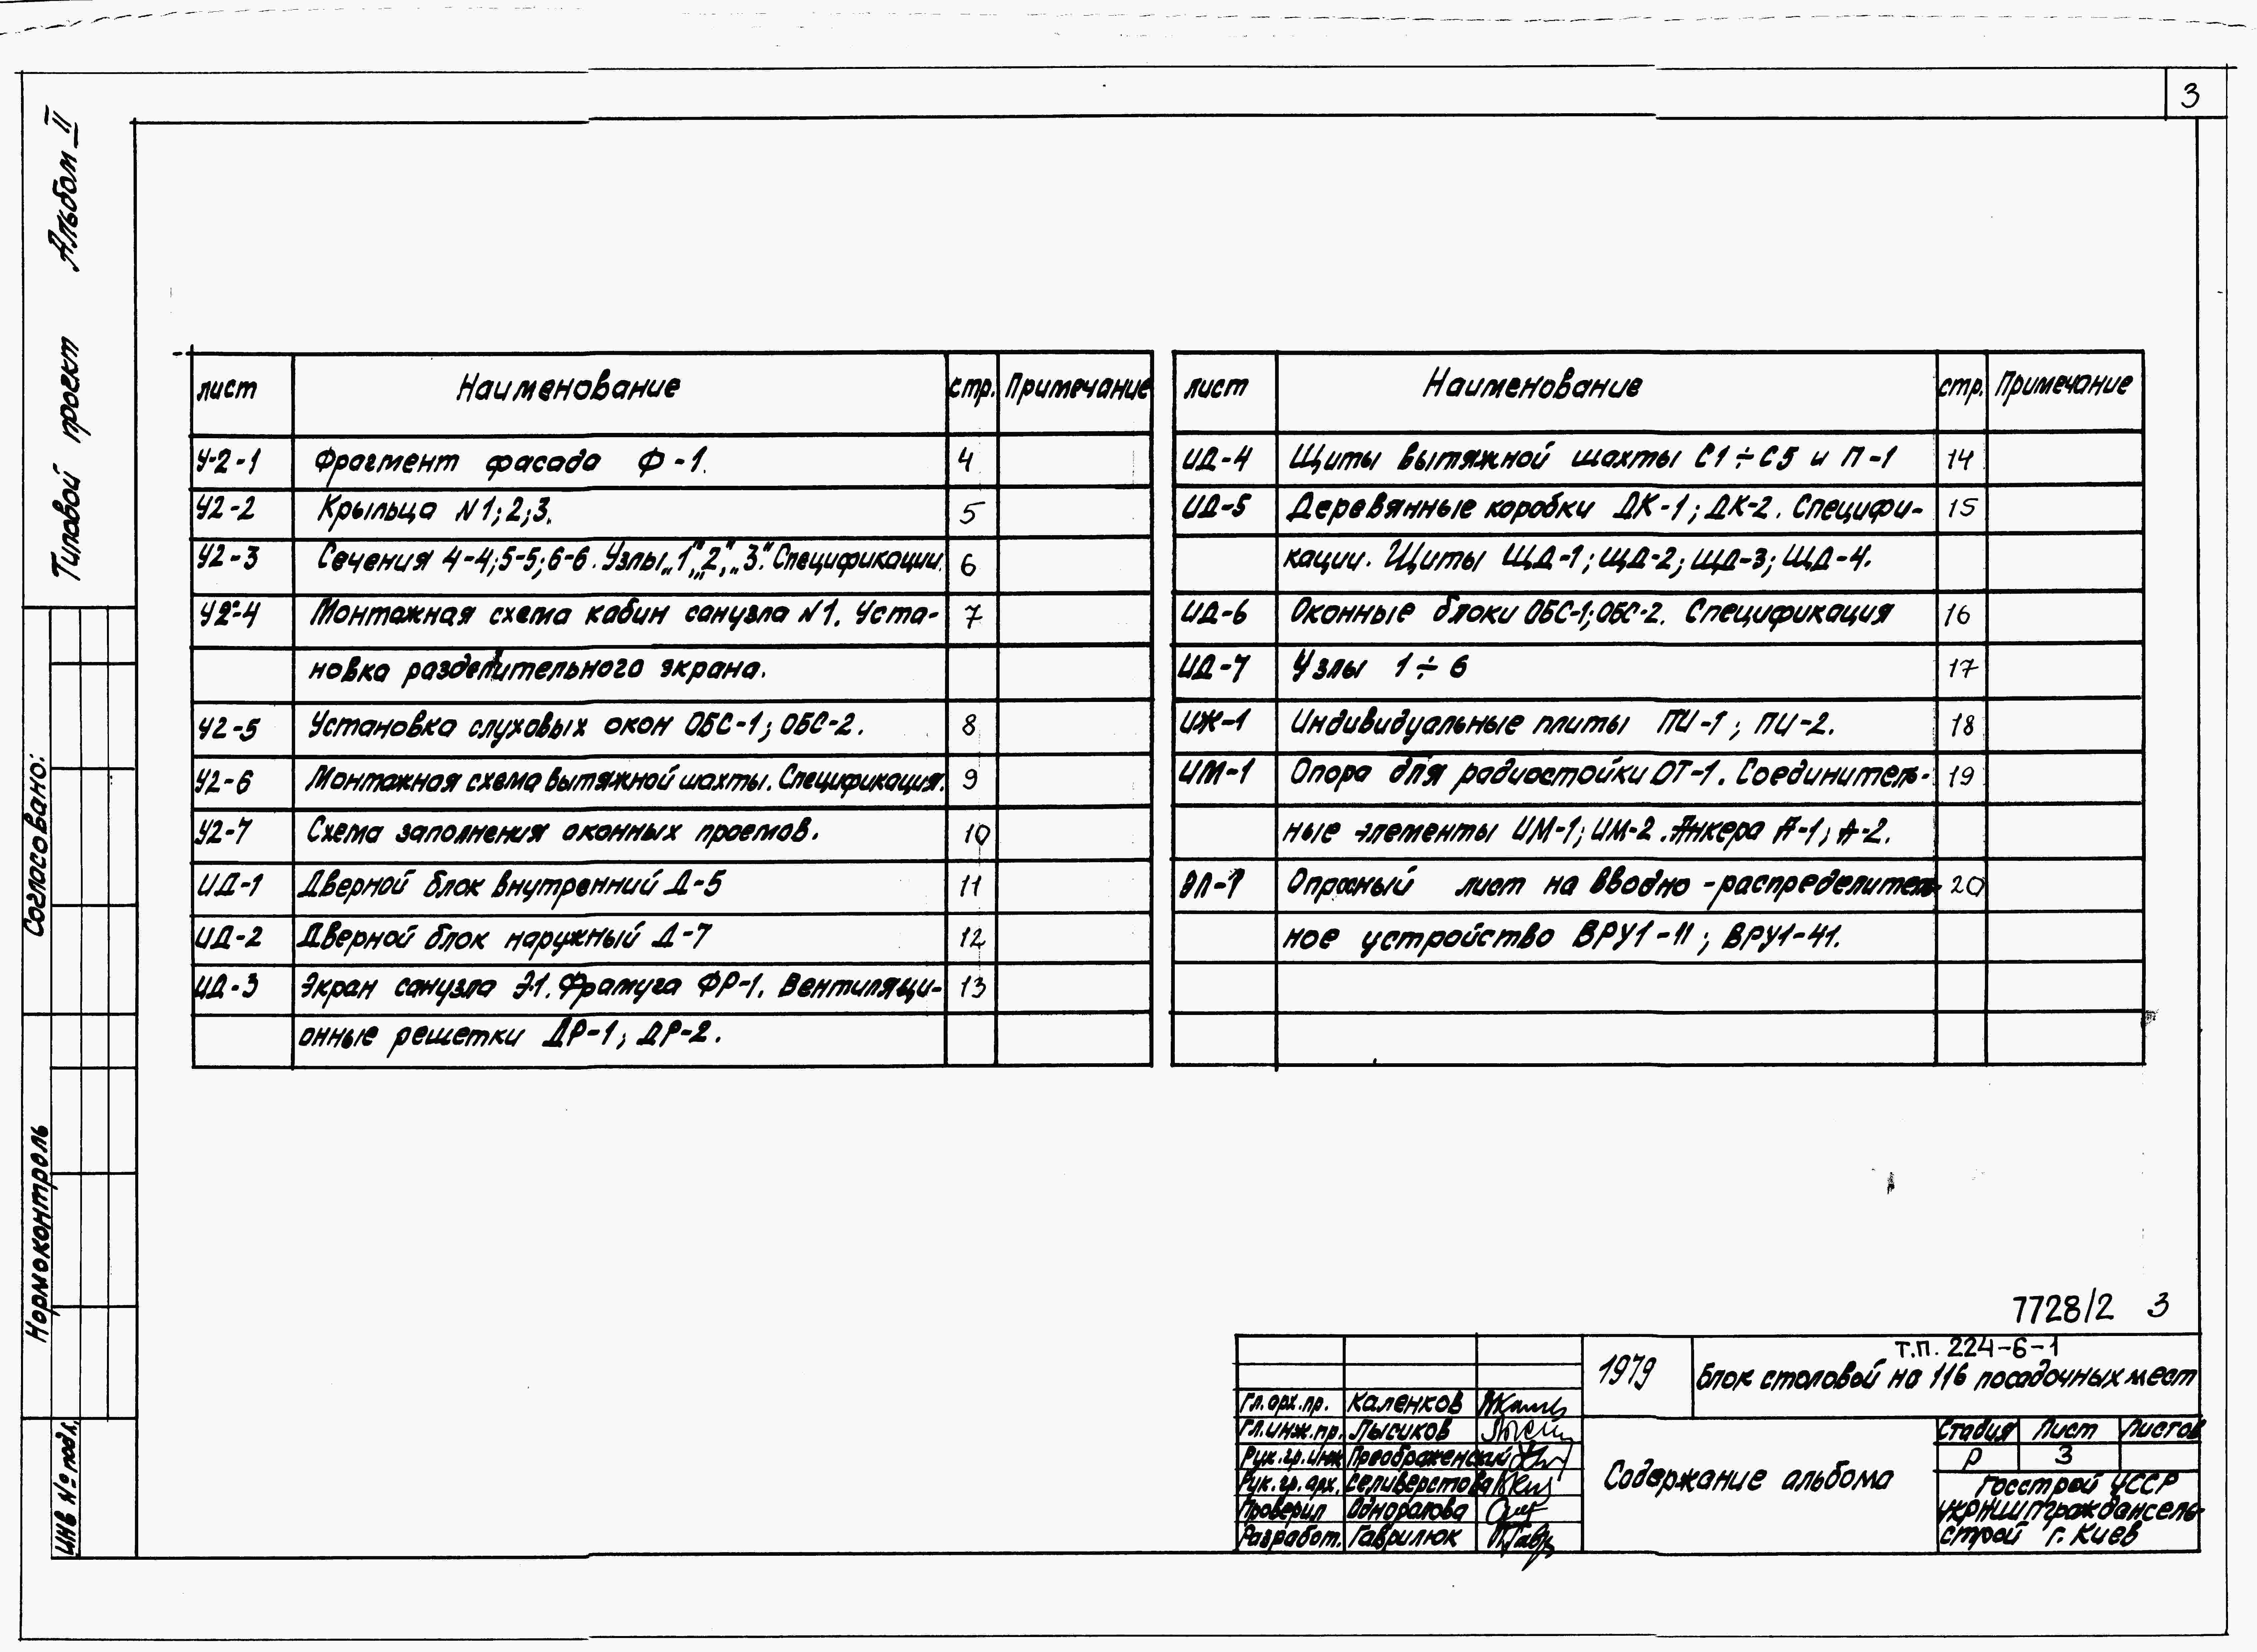 3
Типовой проект Альбом II
лист Наименование стр. Примечание
У-2-1 Фрагмент фасада Ф-1. 4
У2-2 Крыльца N1; 2; 3. 5
У2-3 Сечения 4-4; 5-5; 6-6. Узлы „1", „2", „3". Спецификации. 6
У2-4 Монтажная схема кабин санузла N1. Уста- 7
новка разделительного экрана.
У2-5 Установка слуховых окон ОБС-1; ОБС-2. 8
У2-6 Монтажная схема вытяжной шахты. Спецификация. 9
У2-7 Схема заполнения оконных проемов. 10
ИД-1 Дверной блок внутренний Д-5 11
ИД-2 Дверной блок наружный Д-7 12
ИД-3 Экран санузла Э-1. Фрамуга ФР-1. Вентиляци- 13
онные решетки ДР-1; ДР-2.
лист Наименование стр. Примечание
ИД-4 Щиты вытяжной шахты С1÷С5 и П-1 14
ИД-5 Деревянные коробки ДК-1; ДК-2. Специфи- 15
кации. Щиты ЩД-1; ЩД-2; ЩД-3; ЩД-4.
ИД-6 Оконные блоки ОБС-1; ОБС-2. Спецификация 16
ИД-7 Узлы 1÷6 17
ИЖ-1 Индивидуальные плиты ПИ-1; ПИ-2. 18
ИМ-1 Опора для радиостойки ОТ-1. Соединитель- 19
ные элементы ИМ-1; ИМ-2. Анкера А-1; А-2.
ОЛ-1 Опросный лист на вводно-распределитель- 20
ное устройство ВРУ1-11; ВРУ1-41.
Согласовано:
Нормоконтроль
ИНВ № подл.
7728/2 3
1979
Т.П. 224-6-1
Блок столовой на 116 посадочных мест
Гл. арх. пр. Каленков
Гл. инж. пр. Лысиков
Рук. гр. инж Преображенский
Рук. гр. арх. Селиверстова
Проверил Одноралова
Разработ. Гаврилюк
Содержание альбома
Стадия Лист Листов
Р 3
Госстрой УССР
УкрНИИПграждансель-
строй г. Киев